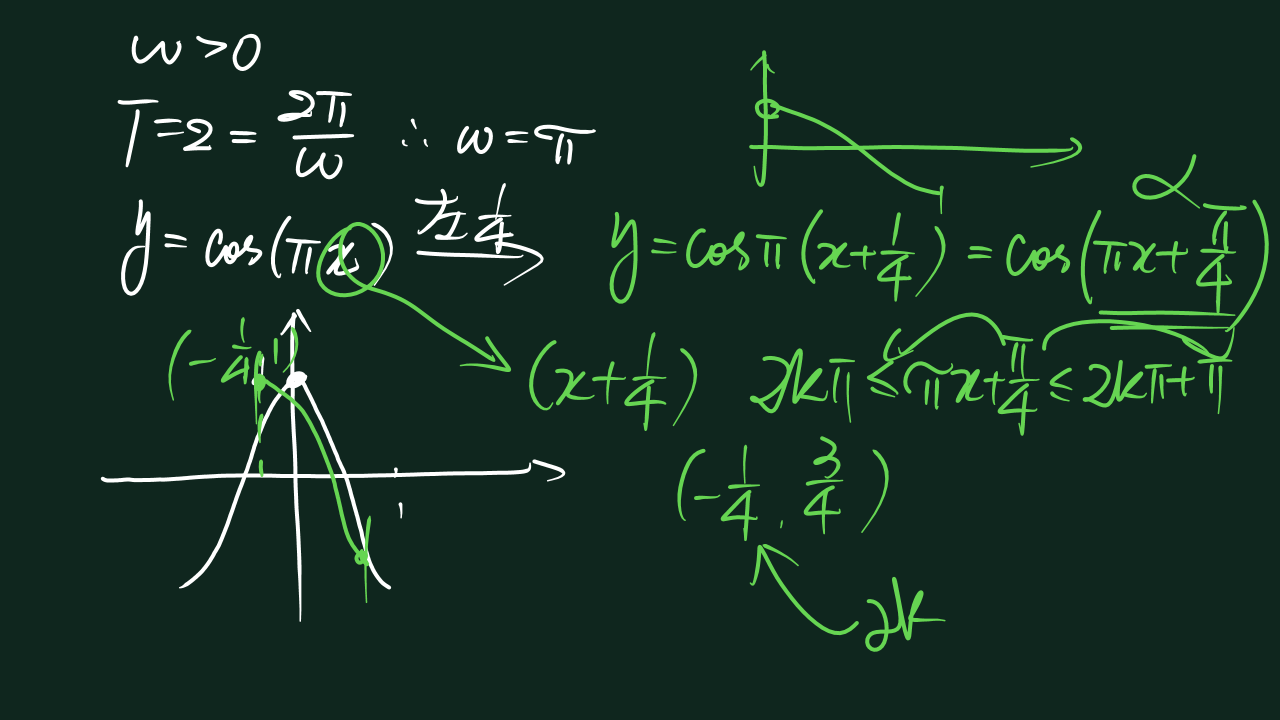 ω > 0
T = 2 = 2π/ω ∴ ω = π
y = cos(πx) 左 1/4 y = cos π(x + 1/4) = cos(πx + π/4) α
(-1/4, 1)
(x + 1/4) 2kπ ≤ πx + π/4 ≤ 2kπ + π
1
(-1/4, 3/4)
2k